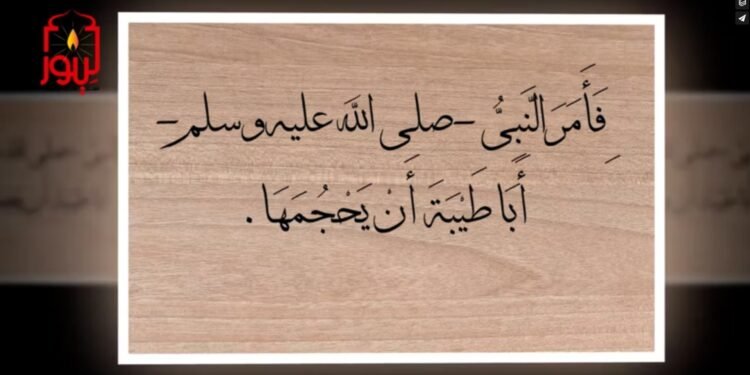 فَأَمَرَ النَّبِىُّ -صلى الله عليه وسلم-
أَبَا طَيْبَةَ أَنْ يَحْجُمَهَا .